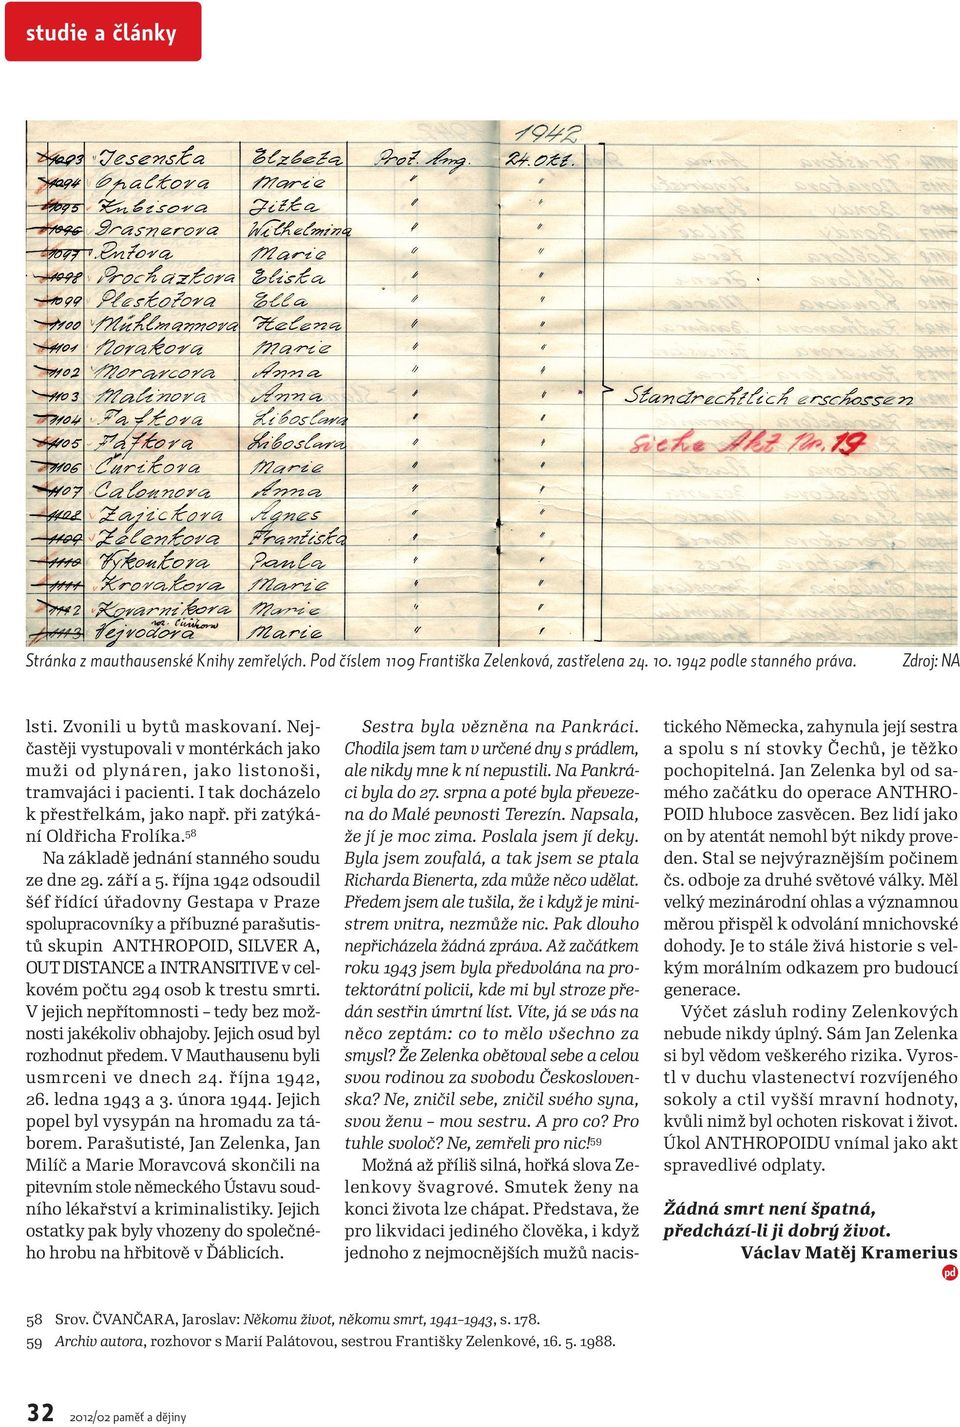 studie a články
1942
1093 Jesenska Elzbeta Prot. Ang. 24. Okt.
1094 Opalkova Marie " "
1095 Kubisova Jitka " "
1096 Drasnerova Wilhelmina " "
1097 Rutova Marie " "
1098 Prochazkova Eliska " "
1099 Pleskotova Ella " "
1100 Mühlmannova Helena " "
1101 Novakova Marie " "
1102 Moravcova Anna " "
1103 Malinova Anna " " Standrechtlich erschossen
1104 Fafkova Liboslava " "
1105 Fafkova Liboslava " " siehe Akt Nr. 19
1106 Čurikova Marie " "
1107 Calounnova Anna " "
1108 Zajickova Agnes " "
1109 Zelenkova Frantiska " "
1110 Vykoukova Paula " "
1111 Krovakova Marie " "
1112 Kovarnikova Marie " "
1113 Vejvodova Marie " "
Stránka z mauthausenské Knihy zemřelých. Pod číslem 1109 Františka Zelenková, zastřelena 24. 10. 1942 podle stanného práva. Zdroj: NA
lsti. Zvonili u bytů maskovaní. Nej-
častěji vystupovali v montérkách jako
muži od plynáren, jako listonoši,
tramvajáci i pacienti. I tak docházelo
k přestřelkám, jako např. při zatýká-
ní Oldřicha Frolíka.58
Na základě jednání stanného soudu
ze dne 29. září a 5. října 1942 odsoudil
šéf řídící úřadovny Gestapa v Praze
spolupracovníky a příbuzné parašutis-
tů skupin ANTHROPOID, SILVER A,
OUT DISTANCE a INTRANSITIVE v cel-
kovém počtu 294 osob k trestu smrti.
V jejich nepřítomnosti – tedy bez mož-
nosti jakékoliv obhajoby. Jejich osud byl
rozhodnut předem. V Mauthausenu byli
usmrceni ve dnech 24. října 1942,
26. ledna 1943 a 3. února 1944. Jejich
popel byl vysypán na hromadu za tá-
borem. Parašutisté, Jan Zelenka, Jan
Milíč a Marie Moravcová skončili na
pitevním stole německého Ústavu soud-
ního lékařství a kriminalistiky. Jejich
ostatky pak byly vhozeny do společné-
ho hrobu na hřbitově v Ďáblicích.
Sestra byla vězněna na Pankráci.
Chodila jsem tam v určené dny s prádlem,
ale nikdy mne k ní nepustili. Na Pankrá-
ci byla do 27. srpna a poté byla převeze-
na do Malé pevnosti Terezín. Napsala,
že jí je moc zima. Poslala jsem jí deky.
Byla jsem zoufalá, a tak jsem se ptala
Richarda Bienerta, zda může něco udělat.
Předem jsem ale tušila, že i když je mini-
strem vnitra, nezmůže nic. Pak dlouho
nepřicházela žádná zpráva. Až začátkem
roku 1943 jsem byla předvolána na pro-
tektorátní policii, kde mi byl stroze pře-
dán sestřin úmrtní líst. Víte, já se vás na
něco zeptám: co to mělo všechno za
smysl? Že Zelenka obětoval sebe a celou
svou rodinou za svobodu Českosloven-
ska? Ne, zničil sebe, zničil svého syna,
svou ženu – mou sestru. A pro co? Pro
tuhle svoloč? Ne, zemřeli pro nic!59
Možná až příliš silná, hořká slova Ze-
lenkovy švagrové. Smutek ženy na
konci života lze chápat. Představa, že
pro likvidaci jediného člověka, i když
jednoho z nejmocnějších mužů nacis-
tického Německa, zahynula její sestra
a spolu s ní stovky Čechů, je těžko
pochopitelná. Jan Zelenka byl od sa-
mého začátku do operace ANTHRO-
POID hluboce zasvěcen. Bez lidí jako
on by atentát nemohl být nikdy prove-
den. Stal se nejvýraznějším počinem
čs. odboje za druhé světové války. Měl
velký mezinárodní ohlas a významnou
měrou přispěl k odvolání mnichovské
dohody. Je to stále živá historie s vel-
kým morálním odkazem pro budoucí
generace.
Výčet zásluh rodiny Zelenkových
nebude nikdy úplný. Sám Jan Zelenka
si byl vědom veškerého rizika. Vyros-
tl v duchu vlastenectví rozvíjeného
sokoly a ctil vyšší mravní hodnoty,
kvůli nimž byl ochoten riskovat i život.
Úkol ANTHROPOIDU vnímal jako akt
spravedlivé odplaty.
Žádná smrt není špatná,
předchází-li ji dobrý život.
Václav Matěj Kramerius
pd
58 Srov. ČVANČARA, Jaroslav: Někomu život, někomu smrt, 1941–1943, s. 178.
59 Archiv autora, rozhovor s Marií Palátovou, sestrou Františky Zelenkové, 16. 5. 1988.
32 2012/02 paměť a dějiny